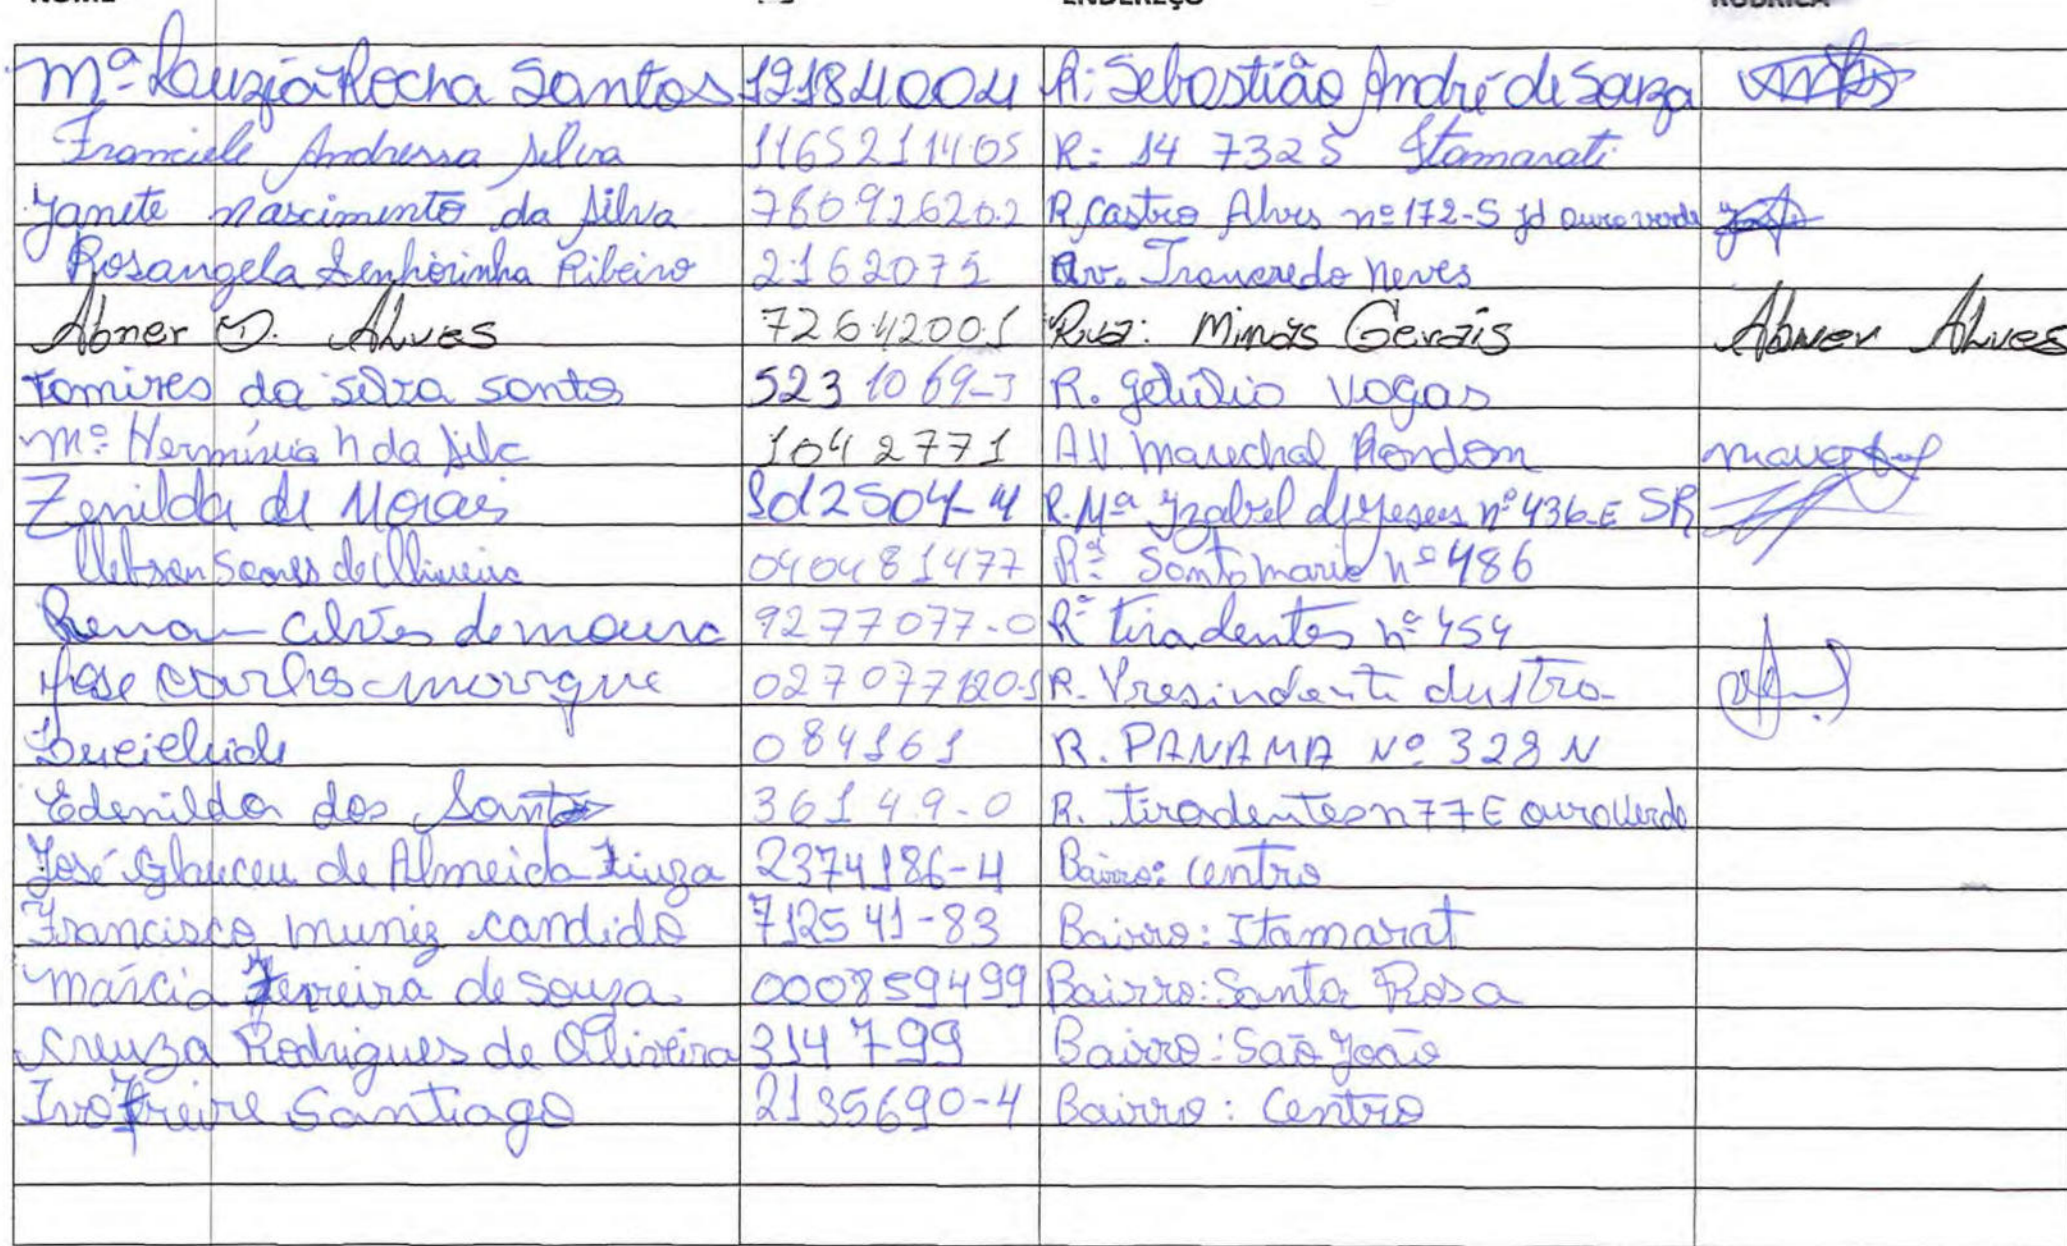 NOME ENDEREÇO RUBRICA
Mª Rocha Santos 12184004 R: Sebastião André de Souza
Franciele Andressa Silva 11652111405 R: 14 7325 Itamarati
Janete Nascimento da Silva 760926202 R. Castro Alves nº 172-S Jd ouro verde
Rosangela Senhorinha Ribeiro 2162075 Av. Trancredo Neves
Abner D. Alves 72642001 Rua: Minas Gerais Abner Alves
Tamires da Silva Santos 5231069-3 R. Getúlio Vogas
Mª Hermínia n da Silva 1042771 AV Marechal Rondon
Zenilda de Morais R. Mª Izabel de Jesus nº 436-E SR
Clebson Soares de Oliveira 040481477 Rª Santa maria nº 486
Renan Alves de moura 9277077-0 Rª tiradentes nº 454
Jose Carlos R. Presindente dustra
084161 R. PANAMA Nº 328 N
Edenilda dos Santos 36149-0 R. tiradentes n 77 E ouro Verde
José de Almeida 2374186-4 Bairro: centro
Francisco muniz candido 712541-83 Bairro: Itamarat
Márcia Ferreira de Souza 000859499 Bairro: Santa Rosa
Creuza Rodrigues de Oliveira 314799 Bairro: São João
Ivo Freire Santiago 2135690-4 Bairro: Centro